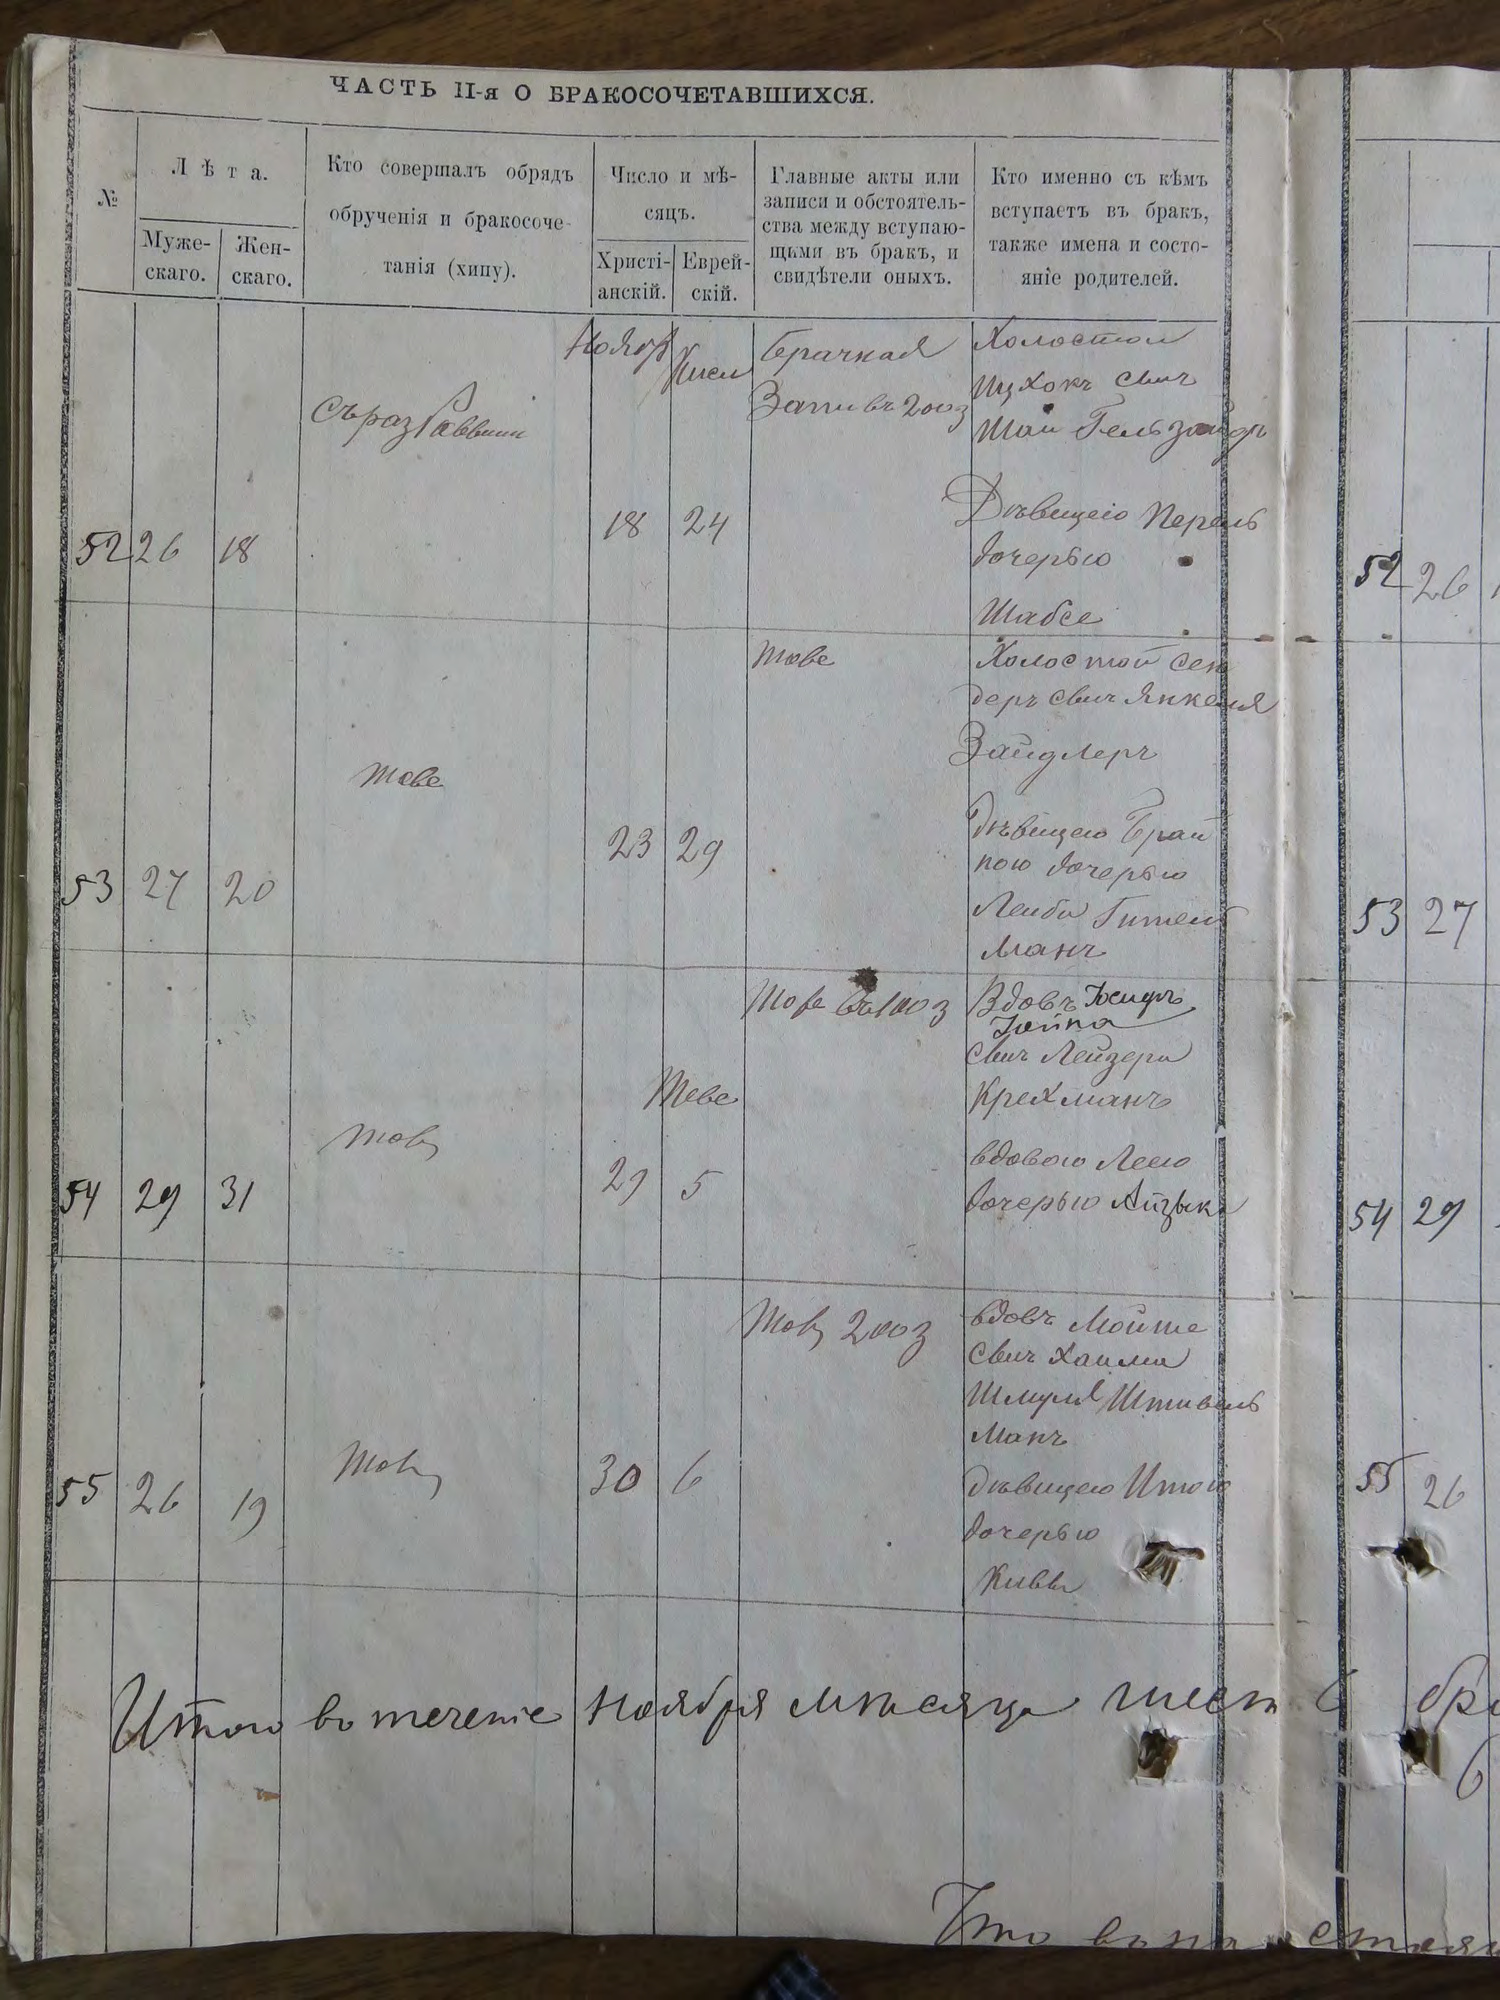 ЧАСТЬ II-я О БРАКОСОЧЕТАВШИХСЯ.
№
Лѣта.
Муже-
скаго.
Жен-
скаго.
Кто совершалъ обрядъ
обрученія и бракосоче-
танія (хипу).
Число и мѣ-
сяцъ.
Христі-
анскій.
Еврей-
скій.
Главные акты или
записи и обстоятель-
ства между вступаю-
щими въ бракъ, и
свидѣтели оныхъ.
Кто именно съ кѣмъ
вступаетъ въ бракъ,
также имена и состо-
яніе родителей.
52 26 18
Съ раз Раввин
Ноябр
18
Кисл
24
Брачная
Запи въ 200 з
Холостои
Ицхокъ свич
Шаи Гельзайдъ
Дѣвицею Перель
дочерью
Шабсе
53 27 20
тоже
23 29
тоже
Холостой Сен
деръ свич Янкеля
Зайдлеръ
дѣвицею Брай
ною дочерью
Лейби Гительс
манъ
54 29 31
тож
29
Теве
5
Тоже въ 100 з
Вдовъ Іосифъ
свич Лейзера
Крейманъ
вдовою Леею
дочерью Айзыка
55 26 19
тож
30 6
Тож 200 з
вдовъ Мойше
свич Хаима
Шмуля Штивель
манъ
дѣвицею Итою
дочерью
Кивы
Итого въ теченіе Ноября мѣсяца шесть
6
52 26
53 27
54 29
55 26
Что въ